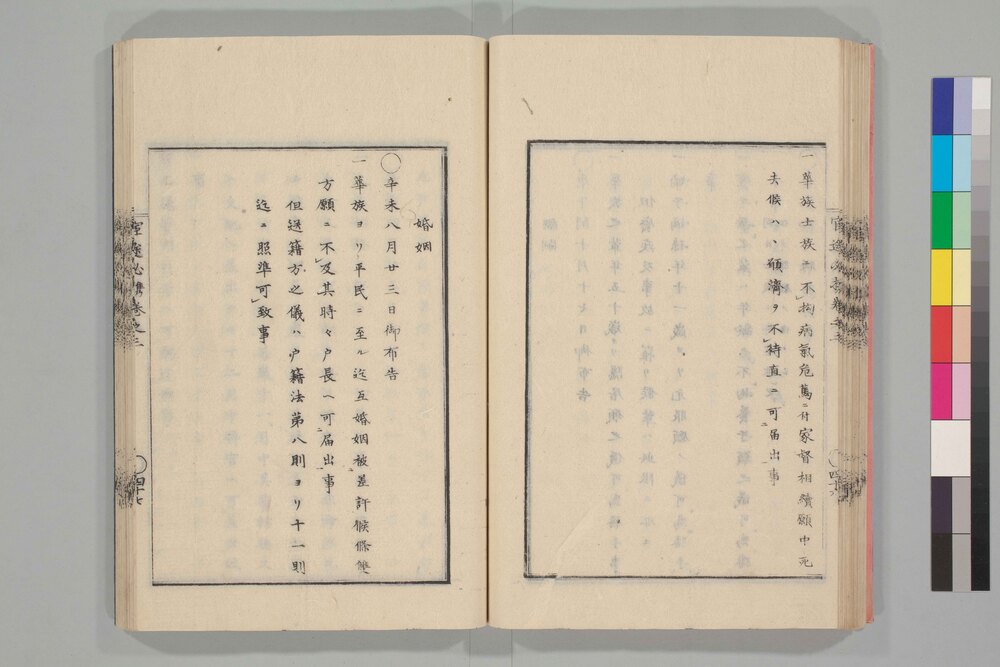 一華族士族ニ不拘病氣危篤ニ付家督相續願中死
去候ハヽ願濟ヲ不待直ニ可届出事
四十六
婚姻
○辛未八月廿三日御布告
一華族ヨリ平民ニ至ル迄互婚姻被差許候條雙
方願ニ不及其時々戸長ヘ可届出事
但送籍方之儀ハ戸籍法第八則ヨリ十一則
迄ニ照準可致事
卷之三
四十七